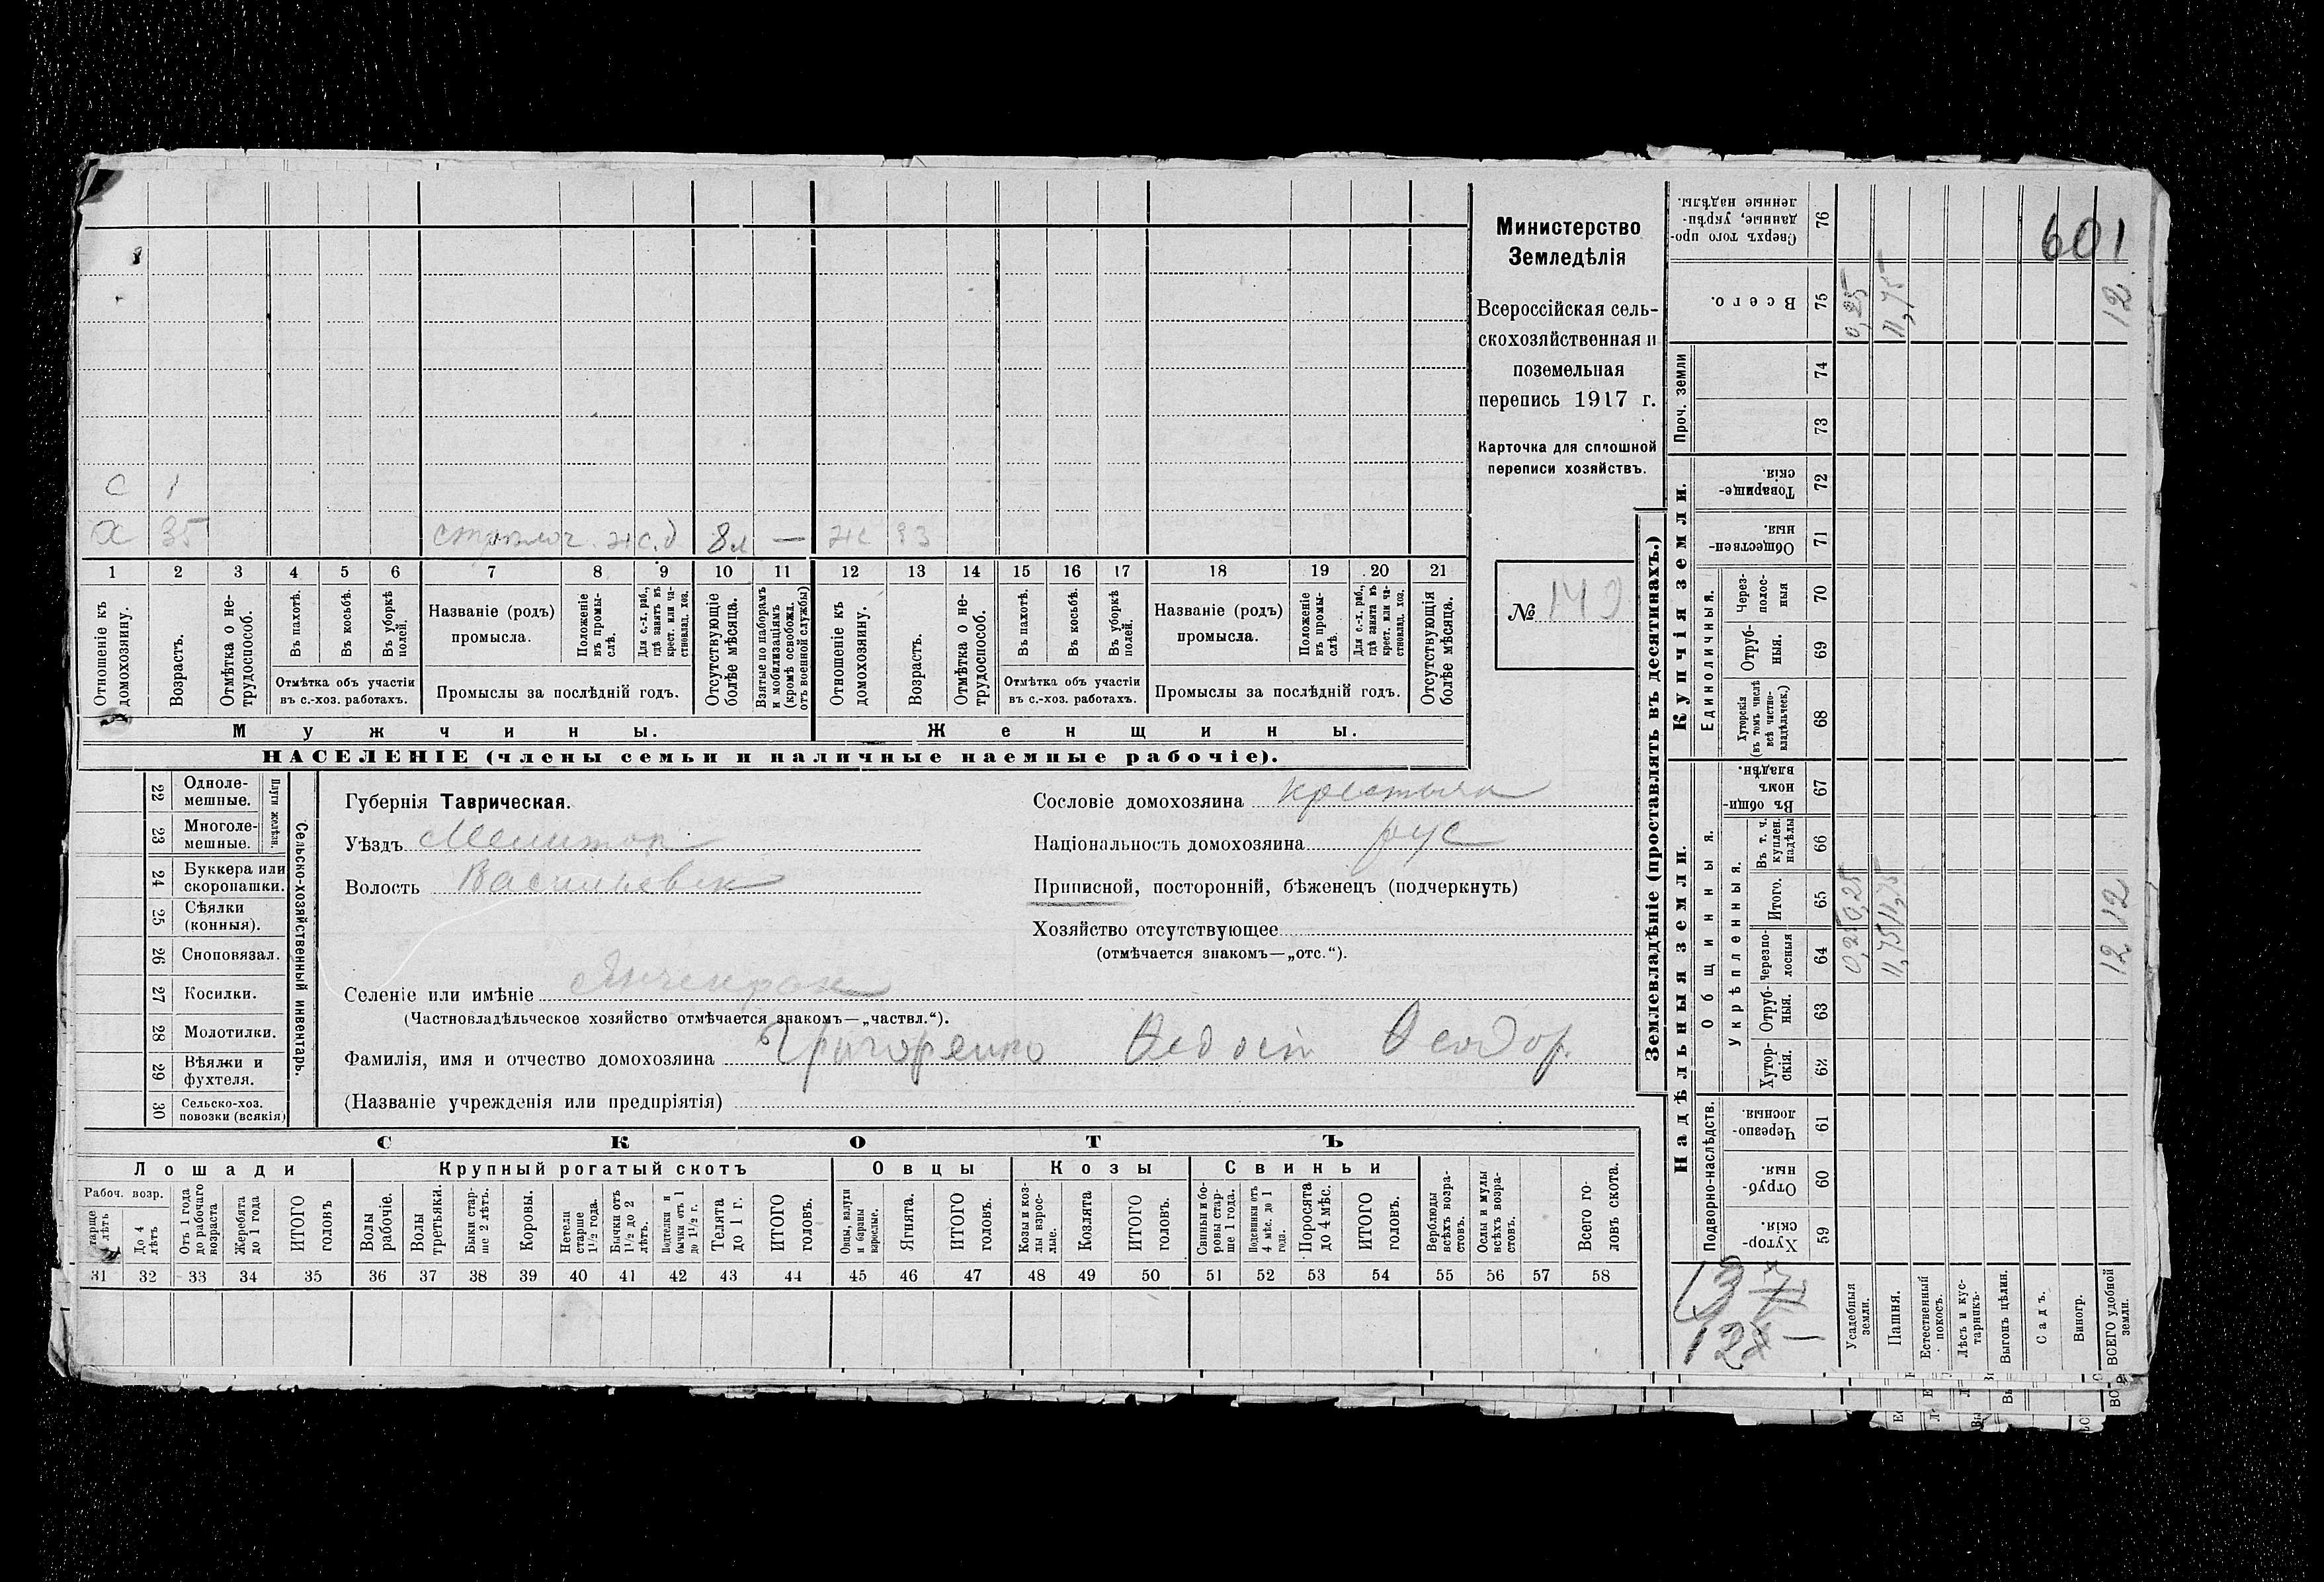 601
Министерство
Земледѣлія
Всероссійская сель-
скохозяйственная и
поземельная
перепись 1917 г.
Карточка для сплошной
переписи хозяйствъ.
№ 149
с 1
х 35 8 л — ж
1 2 3 4 5 6 7 8 9 10 11 12 13 14 15 16 17 18 19 20 21
Отношеніе къ домохозяину.
Возрастъ.
Отмѣтка о не-трудоспособ.
Въ пахотѣ.
Въ косьбѣ.
Въ уборкѣ полей.
Отмѣтка объ участіи
въ с.-хоз. работахъ.
Названіе (родъ)
промысла.
Положеніе въ промы-слѣ.
Для с.-х. раб., гдѣ занятъ въ крест. или ча-стновлад. хоз.
Промыслы за послѣдній годъ.
Отсутствующіе болѣе мѣсяца.
Взятые по наборамъ и мобилизаціямъ (кромѣ освобожд. отъ военной службы)
Отношеніе къ домохозяину.
Возрастъ.
Отмѣтка о не-трудоспособ.
Въ пахотѣ.
Въ косьбѣ.
Въ уборкѣ полей.
Отмѣтка объ участіи
въ с.-хоз. работахъ.
Названіе (родъ)
промысла.
Положеніе въ промы-слѣ.
Для с.-х. раб., гдѣ занята въ крест. или ча-стновлад. хоз.
Промыслы за послѣдній годъ.
Отсутствующія болѣе мѣсяца.
Мужчины.
Женщины.
НАСЕЛЕНІЕ (члены семьи и наличные наемные рабочіе).
Сельско-хозяйственный инвентарь.
Плуги желѣзн.
22 Однолемешные.
23 Многолемешные.
24 Буккера или скоропашки.
25 Сѣялки (конныя).
26 Сноповязал.
27 Косилки.
28 Молотилки.
29 Вѣялки и фухтеля.
30 Сельско-хоз. повозки (всякія)
Губернія Таврическая.
Уѣздъ Мелитоп
Волость Васильевск
Сословіе домохозяина крестьян
Національность домохозяина рус
Приписной, посторонній, бѣженецъ (подчеркнуть)
Хозяйство отсутствующее
(отмѣчается знакомъ—„отс.“).
Селеніе или имѣніе Янчекрак
(Частновладѣльческое хозяйство отмѣчается знакомъ—„частвл.“).
Фамилія, имя и отчество домохозяина Григоренко Ѳедосій Ѳеодор.
(Названіе учрежденія или предпріятія)
СКОТЪ
Лошади
Крупный рогатый скотъ
Овцы
Козы
Свиньи
Рабоч. возр.
тарше лѣтъ
До 4 лѣтъ
Отъ 1 года до рабочаго возраста
Жеребята до 1 года
ИТОГО головъ
Волы рабочіе.
Волы третьяки.
Быки стар-ше 2 лѣтъ.
Коровы.
Нетели старше 1½ года.
Бычки отъ 1½ до 2 лѣтъ.
Подтелки и бычки отъ 1 до 1½ г.
Телята до 1 г.
ИТОГО головъ.
Овцы, валухи и бараны взрослые.
Ягнята.
ИТОГО головъ.
Козы и коз-лы взрос-лые.
Козлята
ИТОГО головъ.
Свиньи и бо-ровы стар-ше 1 года.
Подсвинки отъ 4 мѣс. до 1 года.
Поросята до 4 мѣс.
ИТОГО головъ.
Верблюды всѣхъ возра-стовъ.
Ослы и мулы всѣхъ возра-стовъ.
Всего го-ловъ скота.
31 32 33 34 35 36 37 38 39 40 41 42 43 44 45 46 47 48 49 50 51 52 53 54 55 56 57 58
Землевладѣніе (проставлять въ десятинахъ.)
Надѣльныя земли.
Купчія земли.
Проч. земли
Подворно-наслѣдств.
Общинныя.
Укрѣпленныя.
Единоличныя.
76 Сверхъ того про-данные, укрѣп-ленные надѣлы.
75 Всего. 0,25 11,75 12
74
73
72 Товарище-скія.
71 Обществен-ныя.
70 Через-полос-ныя
69 Отруб-ныя.
68 Хуторскія (въ томъ числѣ всѣ частно-владѣльческ.)
67 Въ общи-номъ владѣн.
66 Въ т. ч. куплен. надѣлы
65 Итого. 0,25 11,75 12
64 Черезпо-лосныя 0,25 11,75 12
63 Отруб-ныя.
62 Хутор-скія.
61 Черезпо-лосныя.
60 Отруб-ныя.
59 Хутор-скія
Усадебныя земли.
Пашня.
Естественный покосъ.
Лѣсъ и кус-тарникъ.
Выгонъ цѣлин.
Садъ.
Виногр.
ВСЕГО удобной земли.